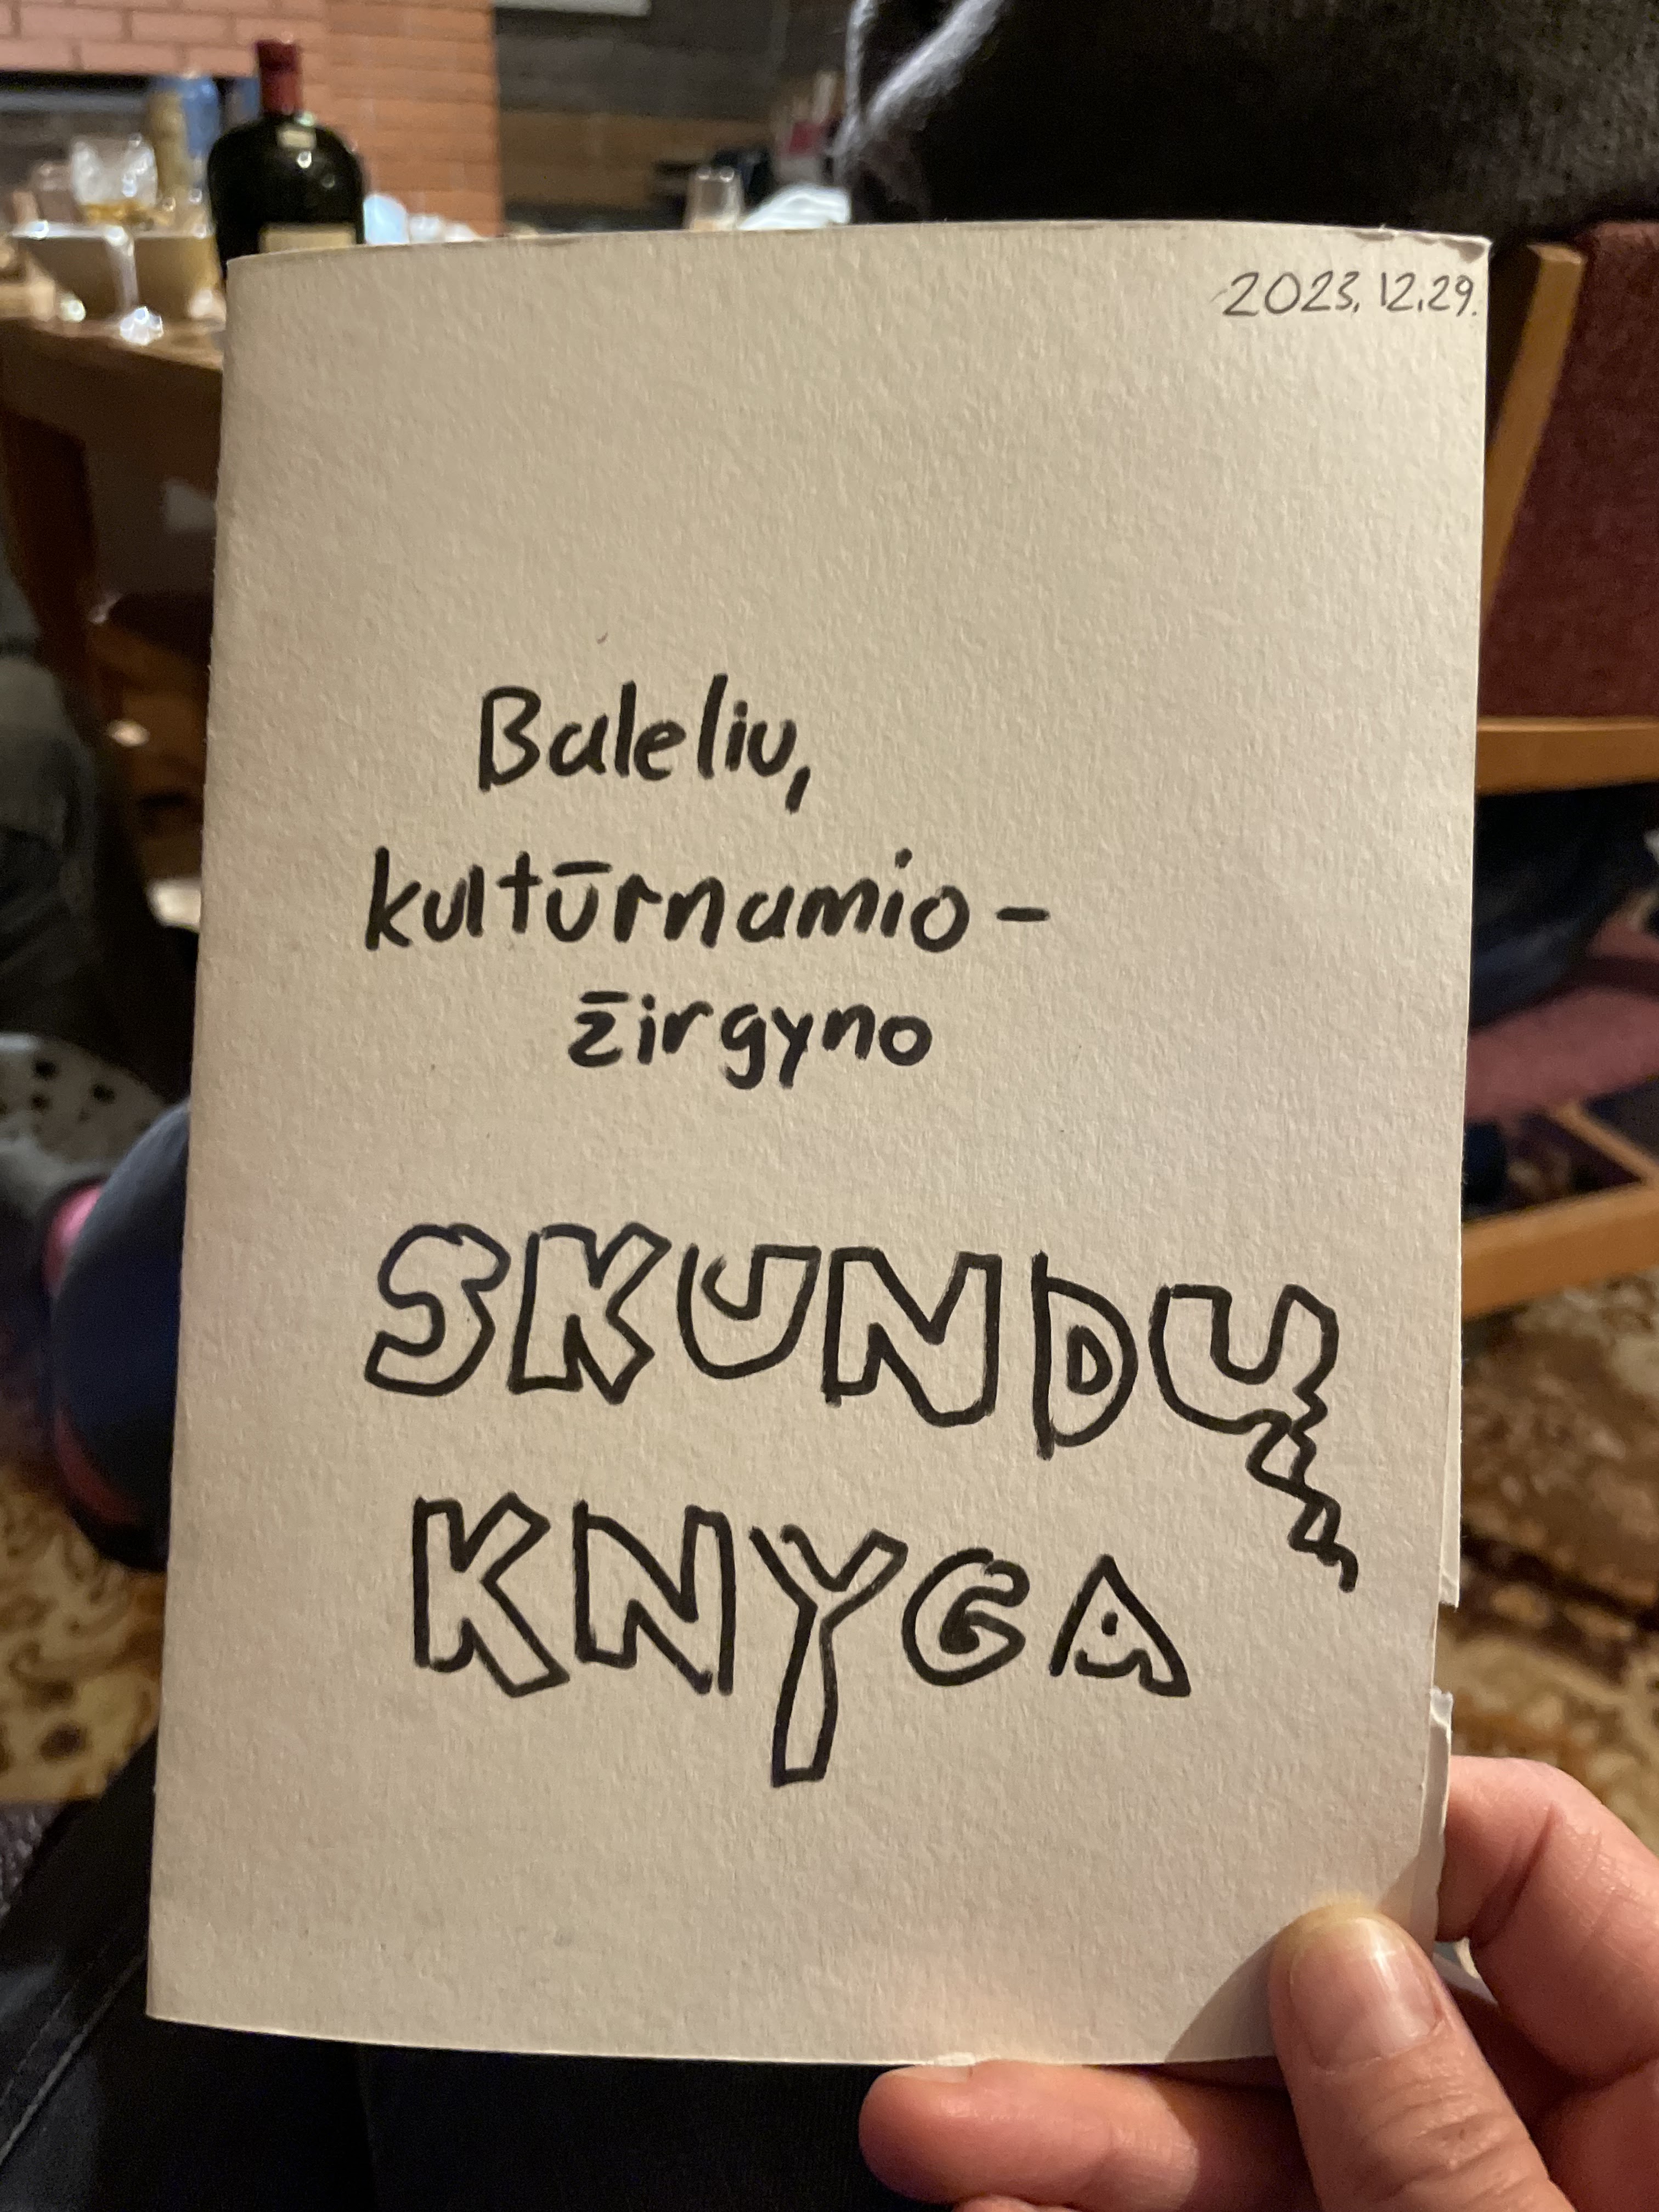 2023.12.29.
Balelių
kultūrnamio-
žirgyno
SKUNDŲ
KNYGA